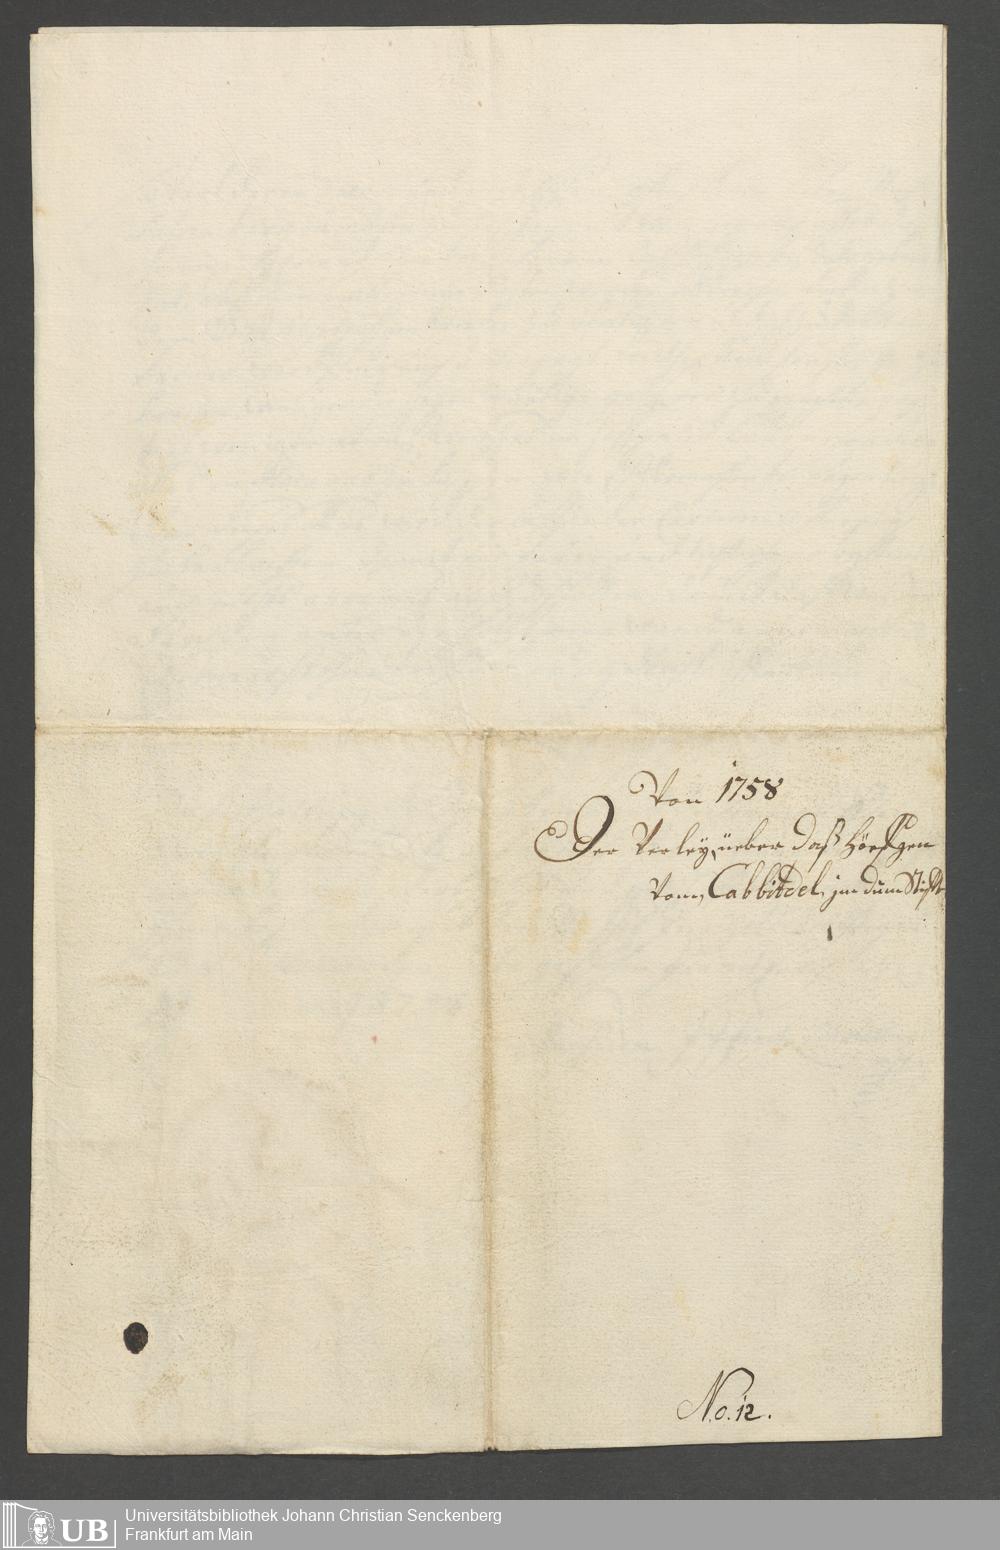 Von 1758
Der Verleÿ, üeber daß Höeffgen
Vom, Cabbittel, jm dum Stifft
No. 12.
UB
Universitätsbibliothek Johann Christian Senckenberg
Frankfurt am Main